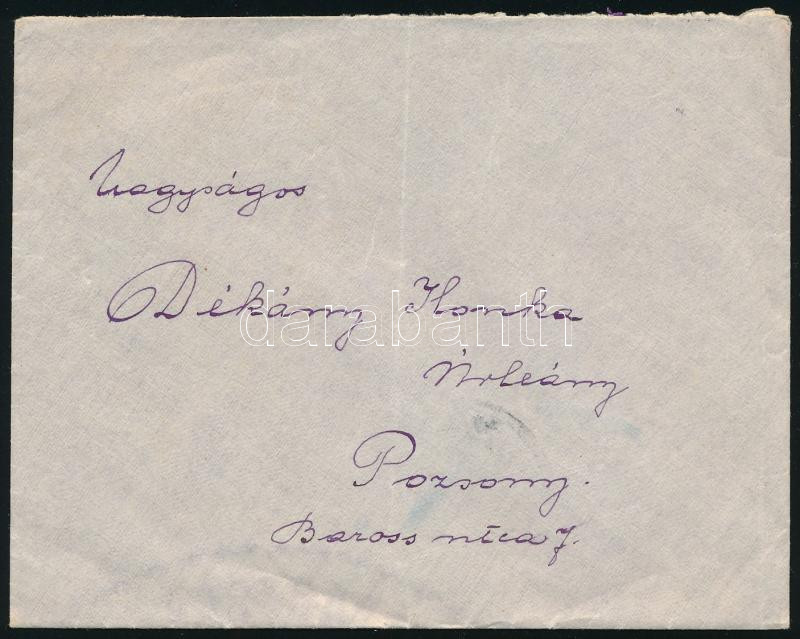 Nagyságos
Dékány Ilonka
Úrleány
Pozsony.
Baross utca 7.
darabanth